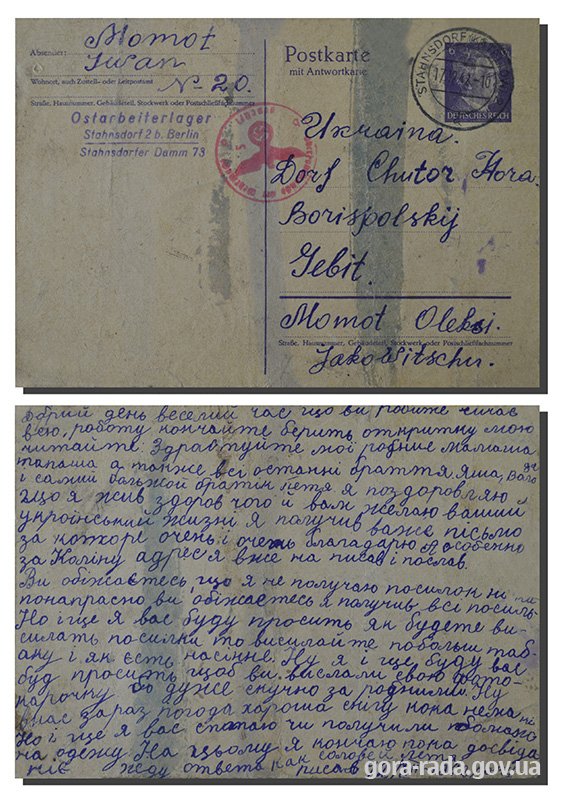 Absender: Momot
Iwan
Wohnort, auch Zustell- oder Leitpostamt
№ 20.
Straße, Hausnummer, Gebäudeteil, Stockwerk oder Postschließfachnummer
Ostarbeiterlager
Stahnsdorf 2 b. Berlin
Stahnsdorfer Damm 73
Postkarte
mit Antwortkarte
STAHNSDORF
6
DEUTSCHES REICH
Ukraina.
Dorf Chutor Hora.
Borispolskij
Gebit.
Momot Oleksi.
Straße, Hausnummer, Gebäudeteil, Stockwerk oder Postschließfachnummer
Jakowitschu.
Добрий день веселий час що ви робите сичас
всю, роботу кончайте берить открытку мою
читайте. Здравствуйте мої родние мамаша
папаша а также всі останні браття Яша, Вася
і самий большой братік Петя я поздоровляю
що я жив здоров чого й вам желаю ваший
український жизні я получив важе письмо
за которе очень і очень благадарю А особенно
за Коліну адрес я вже на писав і послав.
Ви обіжаєтесь, що я не получаю посилок ні
понапрасно ви, обіжаєтесь я получив, всі посил-
Но і ще я вас буду просить як будете ви-
силать посилки то висилайте побольш таб-
аку і як єсть насіння. Ну я і ще буду вас
буд просить щоб ви вислали свою фото-
карочку бо дуже скучно за родними. Ну
внас зараз погода хароша снігу пока нема
Но і ще я вас спитаю чи получили
на одежу На цьому я кончаю пока досвіда
ніє жду ответа как соловей лєта
писав
gora-rada.gov.ua